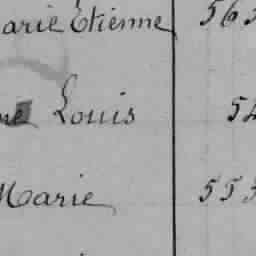 arie Etienne 565
ne Louis 54
Marie 553